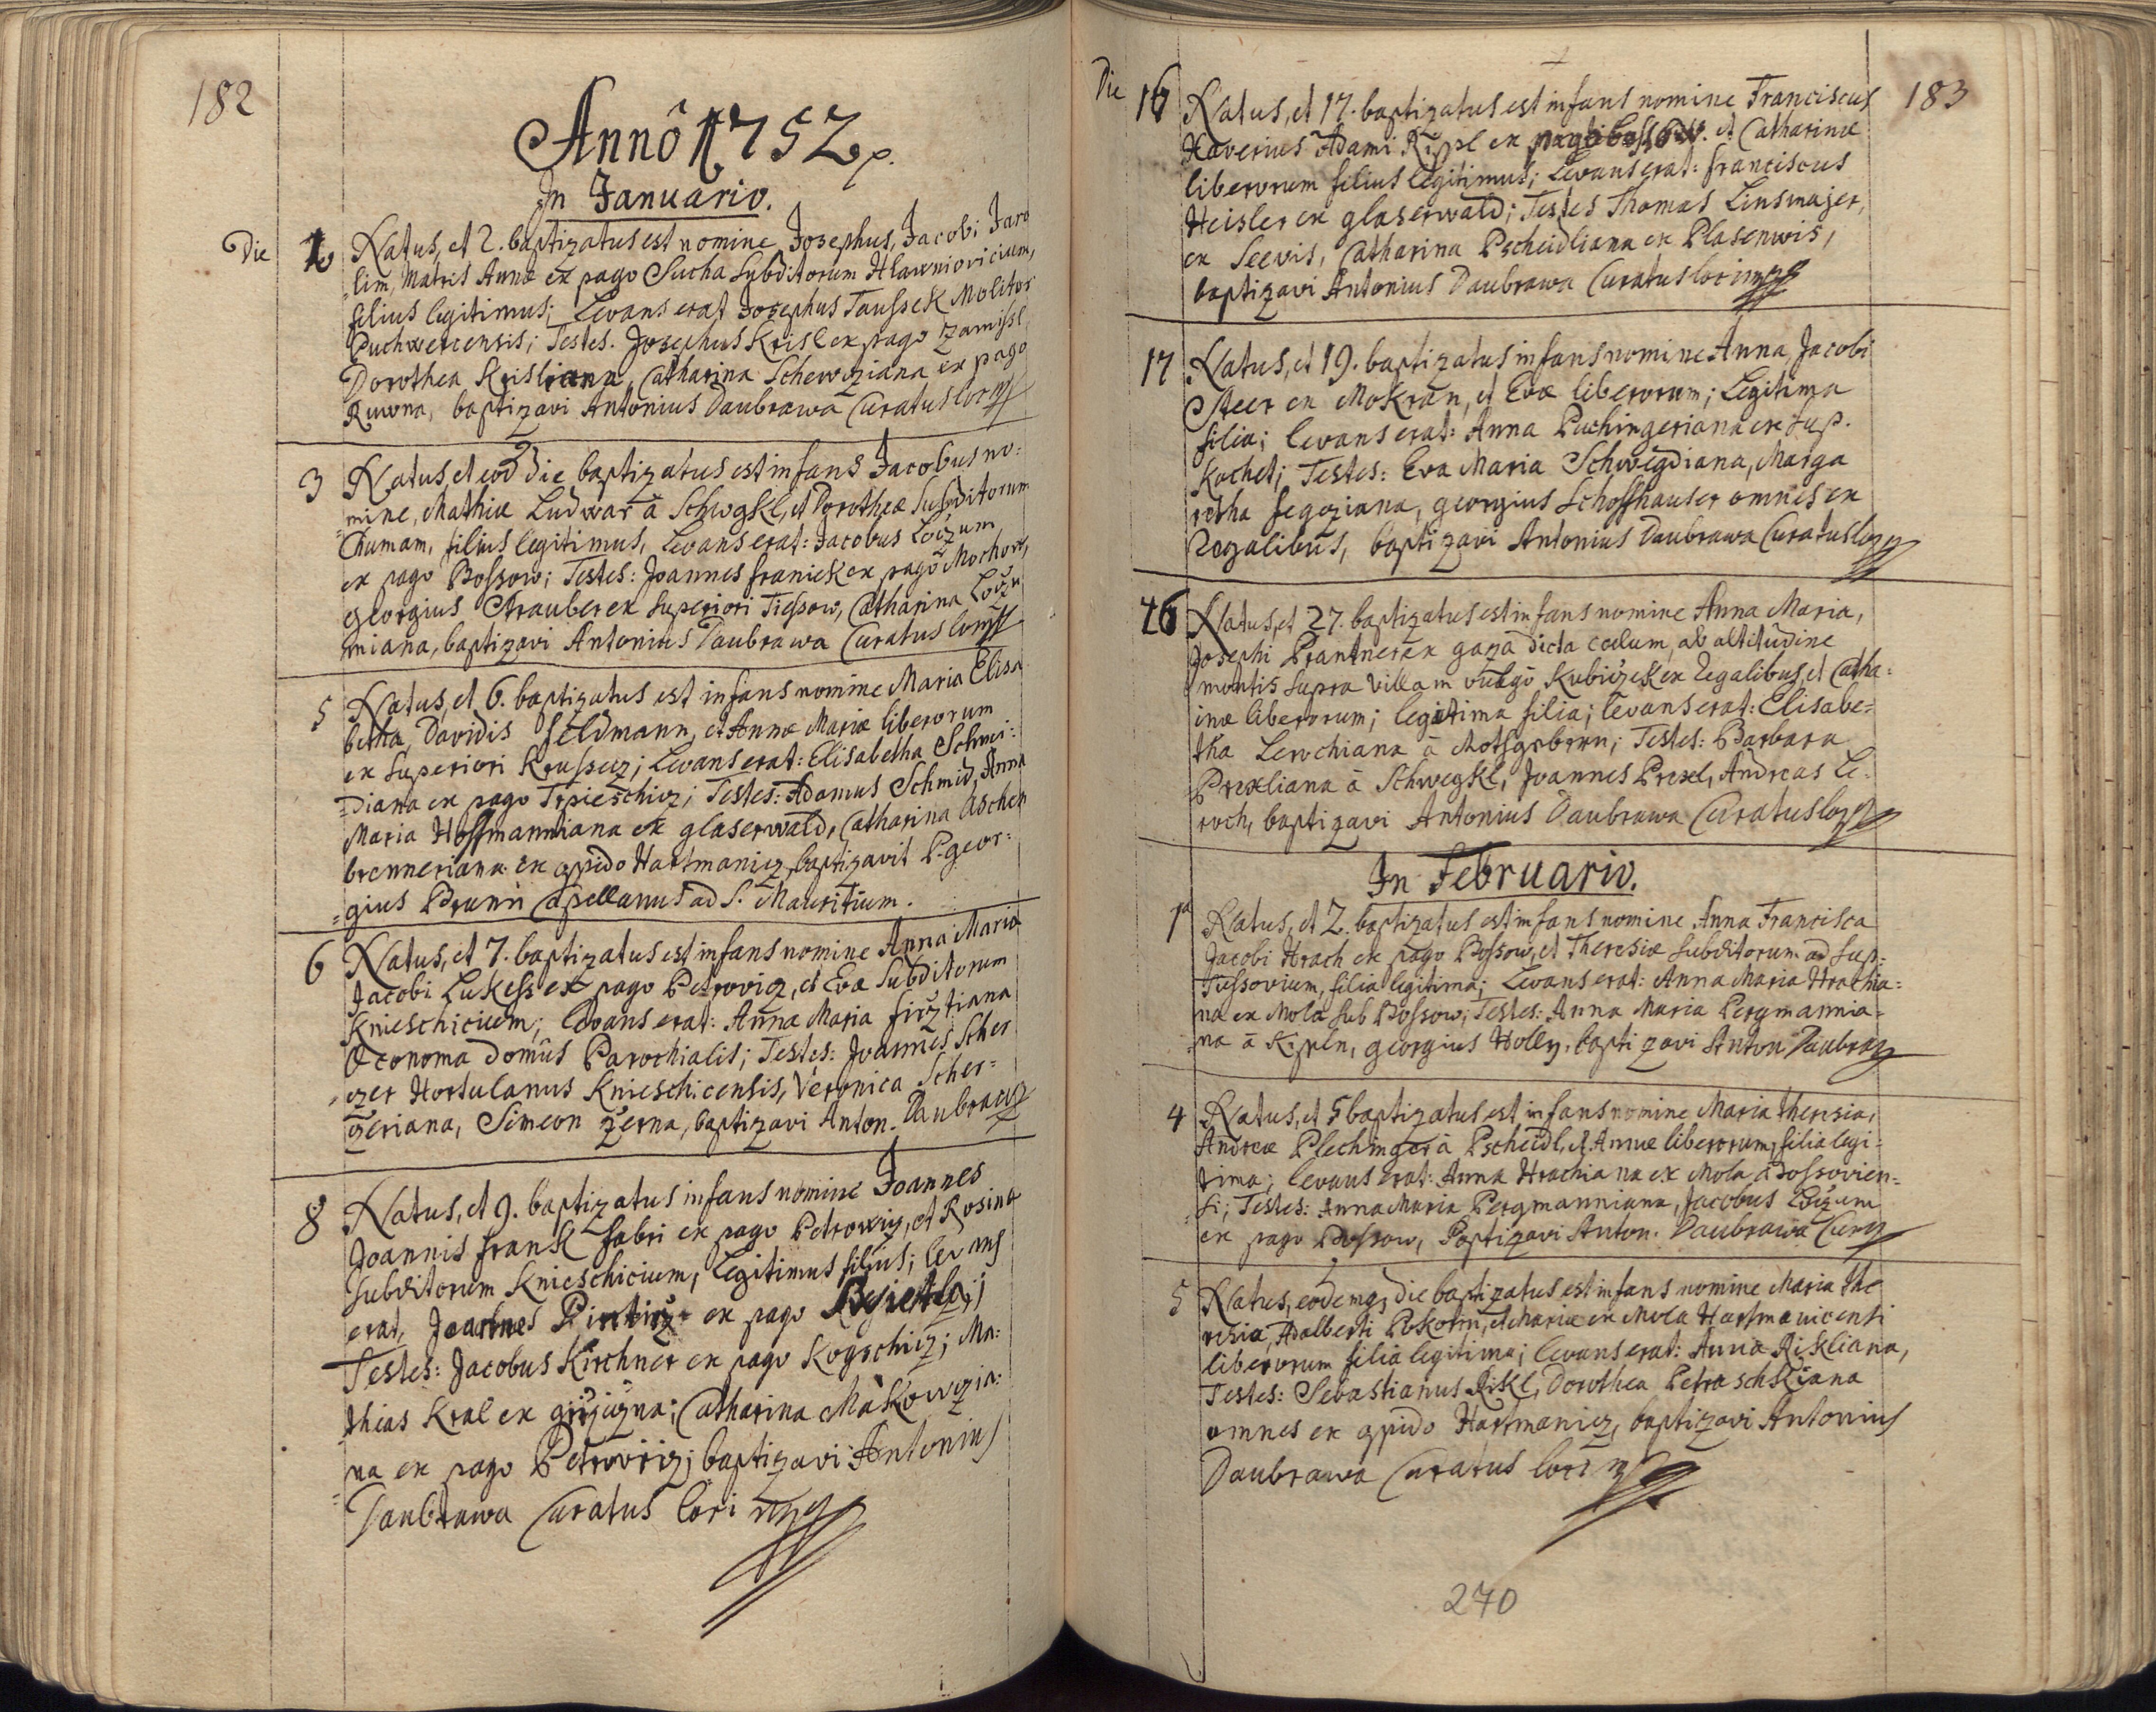 182
Annô 1752 p.
In Januario.
Die 1 Natus, et 2. baptizatus est nomine Josephus, Jacobi Jaro
lim, Matris Annæ ex pago Sucha subditorum Hlawniovicium,
filius legitimus; Levans erat Josephus Taussek Molitor
Puchwercensis; Testes. Josephus Krisl ex pago Zamissl
Dorothea Krisliana, Catharina Schewcziana ex pago
Ruwna, baptizavi Antonius Daubrawa Curatus loci
3 Natus, et eod die baptizatus est infans Jacobus no:
mine, Mathiæ Ludwar â Schwgkl, et Dorotheæ Subditorum
Chumam, filius legitimus, Levans erat: Jacobus Loizum
ex pago Possow; Testes: Joannes franiek ex pago Mochow,
georgius Strauber ex Superiori Tiessow, Catharina Loizu
miana, baptizavi Antonius Daubrawa Curatus loci
5 Natus, et 6. baptizatus est infans nomine Maria Elisa
betha, Davidis feldmann, et Annæ Mariæ liberorum
ex Superiori Krussecz; Levans erat: Elisabetha Schmi:
diana ex pago Trpieschicz; Testes: Adamus Schmid, Anna
Maria Hoffmanniana ex glaserwald, Catharina Aschen
brenneriana ex oppido Hartmanicz, baptizavit P. geor:
gius Prunn Capellanus ad S. Mauritium.
6 Natus, et 7. baptizatus est infans nomine Anna Maria
Jacobi Lukess ex pago Petrovicz, et Evæ Subditorum
Knieschicium; Levans erat: Anna Maria firztiana
Oeconoma domûs Parochialis; Testes: Joannes Scher
czer Hortulanus Knieschicensis, Veronica Scher=
czeriana, Simeon Zerna, baptizavi Anton. Daubrawa
8 Natus, et 9. baptizatus infans nomine Joannes
Joannis frank fabri ex pago Petrowicz, et Rosinæ
Subditorum Knieschicium, Legitimus filius; levans
erat, Joannes Pintirz ex pago
Testes: Jacobus Kirchner ex pago Kogschicz; Ma:
thias Kral ex girziczna; Catharina Makowczia:
na ex pago Petrovicz; baptizavi Antonius
Daubrawa Curatus loci mp
183
Die 16 Natus, et 17. baptizatus est infans nomine Franciscus
Xaverius Adami Rippl ex pago Possow. et Catharinæ
liberorum filius legitimus; Levans erat: franciscus
Heisler ex glaserwald; Testes Thomas Linsmajer,
ex Seevis, Catharina Pscheidliana ex Plasenwis,
baptizavi Antonius Daubrawa Curatus loci mp
17 Natus, et 19. baptizatus infans nomine Anna, Jacobi
Steer ex Mokran, et Evæ liberorum; Legitima
filia; levans erat: Anna Puchingeriana ex sup.
Kochet; Testes: Eva Maria Schwegdiana, Marga
retha fegcziana, georgius Schoffhauser omnes ex
Regalibus, baptizavi Antonius Daubrawa Curatus loci
26 Natus, et 27. baptizatus est infans nomine Anna Maria,
Josephi Prantner ex gaza dicta cælum, ab altitudine
montis supra villam vulgô Kubiczek ex Regalibus, et Catha:
inæ liberorum; legitima filia; levans erat: Elisabe=
tha Lerchiana â Motsgrbern; Testes: Barbara
Prexliana â Schwegkl, Joannes Prexl, Andreas Le:
rch, baptizavi Antonius Daubrawa Curatus loci
In Februario.
1ª Natus, et 2. baptizatus est infans nomine Anna Francisca
Jacobi Hrach ex pago Possow, et Theresiæ Subditorum ad Sup:
Tiessovium, filia legitima; Levans erat: Anna Maria Hrachia:
na ex Mola sub Possow; Testes: Anna Maria Pergmannia=
na â Kispln, georgius Holly, baptizavi Anton Daubraw
4 Natus, et 5 baptizatus est infans nomine Maria theresia,
Andreæ Plechinger â Pscheidl, et Annæ liberorum, filia legi:
tima; levans erat: Anna Hrachiana ex Mola Possovien=
si; Testes: Anna Maria Pergmanniana, Jacobus Loizum
ex pago Possow, Baptizavi Anton. Daubrawa Cur
5 Natus, eodemq; die baptizatus est infans nomine Maria the
resia, Adalberti Pokorn, et Mariæ ex Mola Hartmanicensi
liberorum filia legitima; levans erat: Anna Rikliana,
Testes: Sebastianus Rikl, Dorothea Petraschkiana
omnes ex oppido Hartmanicz, baptizavi Antonius
Daubrawa Curatus loci mp
270